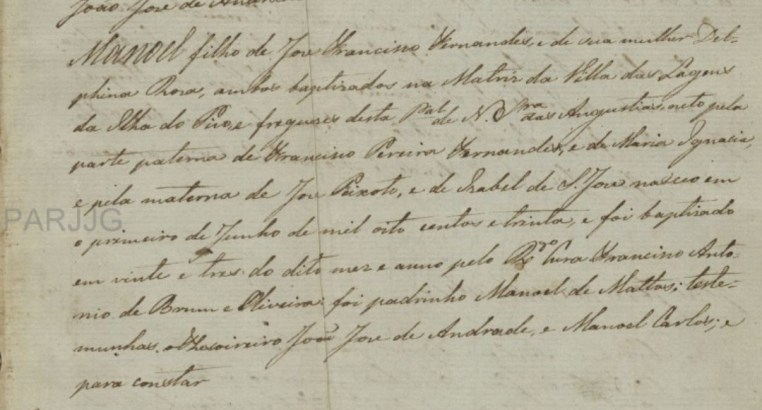 João Jose de Andrade
Manoel filho de Jose Francisco Fernandes, e de sua mulher Del-
phina Rosa, ambos baptizados na Matriz da Villa das Lagens
da Ilha do Pico, e freguezes desta Pal de N. Snra das Angustias, neto pela
parte paterna de Francisco Pereira Fernandes, e de Maria Ignacia,
e pela materna de Jose Peixoto, e de Izabel de S. Jose nasceo em
o primeiro de Junho de mil oito centos e trinta, e foi baptizado
em vinte e tres do dito mez e anno pelo Cura Francisco Anto-
nio de Brum e Oliveira: foi padrinho Manoel de Mattos; teste-
munhas, o Thesoireiro João Jose de Andrade, e Manoel Carlos; e
para constar
PARJJG